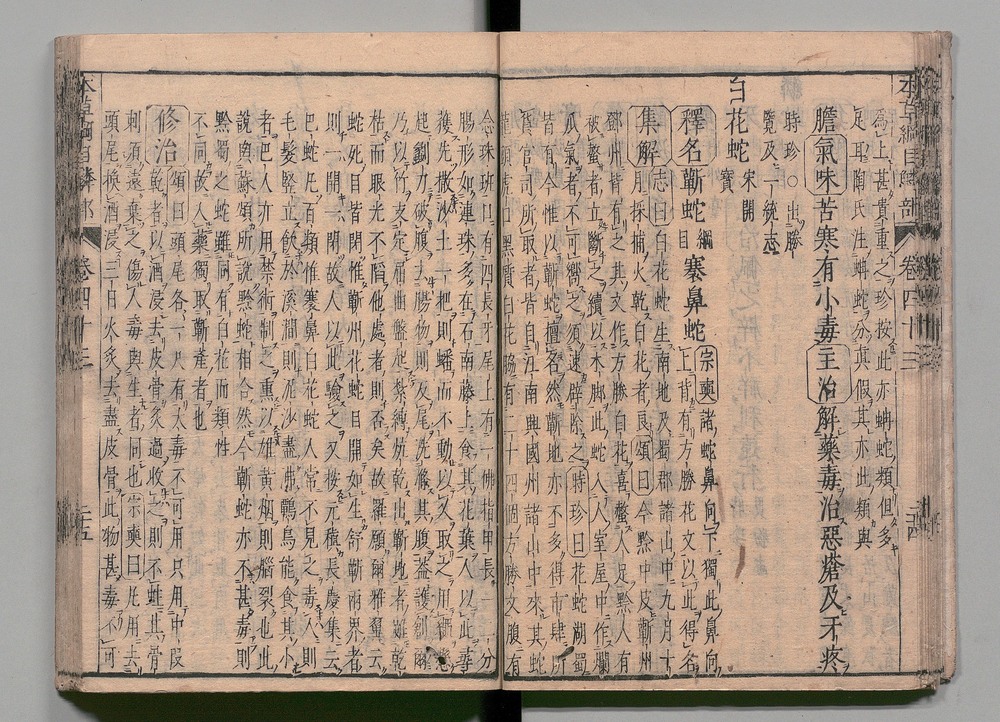 本草綱目鱗部 卷四十三 二十四
爲上甚貴重之珍按此亦蚺蛇類但多
足耳陶氏注蚺蛇分眞假其亦此類與
膽氣味苦寒有小毒主治解藥毒治惡瘡及牙疼
時珍○出勝
覽及一統志
白花蛇宋開寶
釋名蘄蛇綱目褰鼻蛇宗奭曰諸蛇鼻向下獨此鼻向
上背有方勝花文以此得名
集解志曰白花蛇生南地及蜀郡諸山中九月十
月采捕火乾白花者良頌曰今黔中及蘄州
鄧州皆有之其文作方勝白花喜螫人足黔人有
被螫者立斷之續以木脚此蛇人人室屋中作爛
瓜氣者不可嚮之須速辟除之時珍曰花蛇湖蜀
皆有今惟以蘄蛇擅名然蘄地亦不多得市肆所
貨官司所取者皆自江南興國州諸山中來其蛇
龍頭虎口黑質白花脇有二十四個方勝文腹有
念珠班口有四長牙尾上有一佛指甲長一二分
腸形如連珠多在石南藤上食其花葉人以此尋
獲先撒沙土一把則蟠而不動以叉取之用繩懸
起劙刀破腹去腸物則反尾洗滌其腹蓋護創爾
乃以竹支定屈曲盤起紮縛炕乾出蘄地者雖乾
枯而眼光不陷他處者則否矣故羅願爾雅翼云
蛇死目皆閉惟蘄州花蛇目開如生舒蘄兩界者
則一開一閉故人以此驗之又按元稹長慶集云
巴蛇凡百類惟褰鼻白花蛇人常不見之毒人則
毛髮竪立飲於溪澗則泥沙盡沸鸇鳥能食其小
者巴人亦用禁術制之熏以雄黃烟則腦裂也此
說與蘇頌所說黔蛇相合然今蘄蛇亦不甚毒則
黔蜀之蛇雖同有白花而類性
不同故入藥獨取蘄產者也
修治頌曰頭尾各一尺有大毒不可用只用中段
乾者以酒浸去皮骨炙過收之則不蛀其骨
刺須遠棄之傷人毒與生者同也宗奭曰凡用去
頭尾換酒浸三日火炙去盡皮骨此物甚毒不可
本草綱目鱗部 卷四十三 二十五